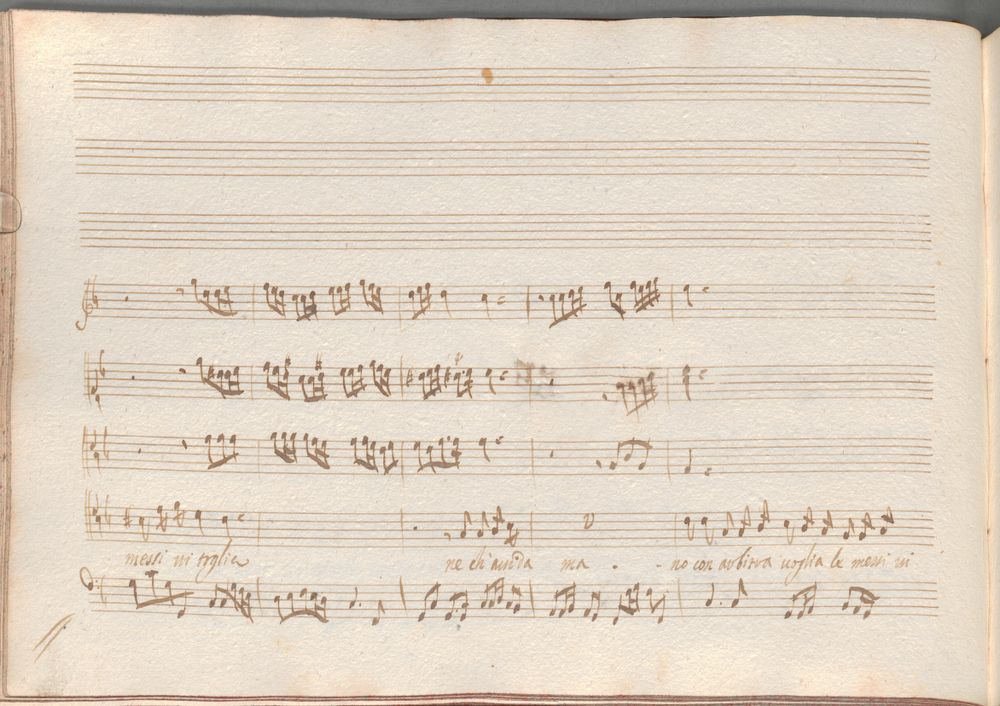 messi ui toglia ne ch'auida ma . . no con arbitra uoglia le messi ui